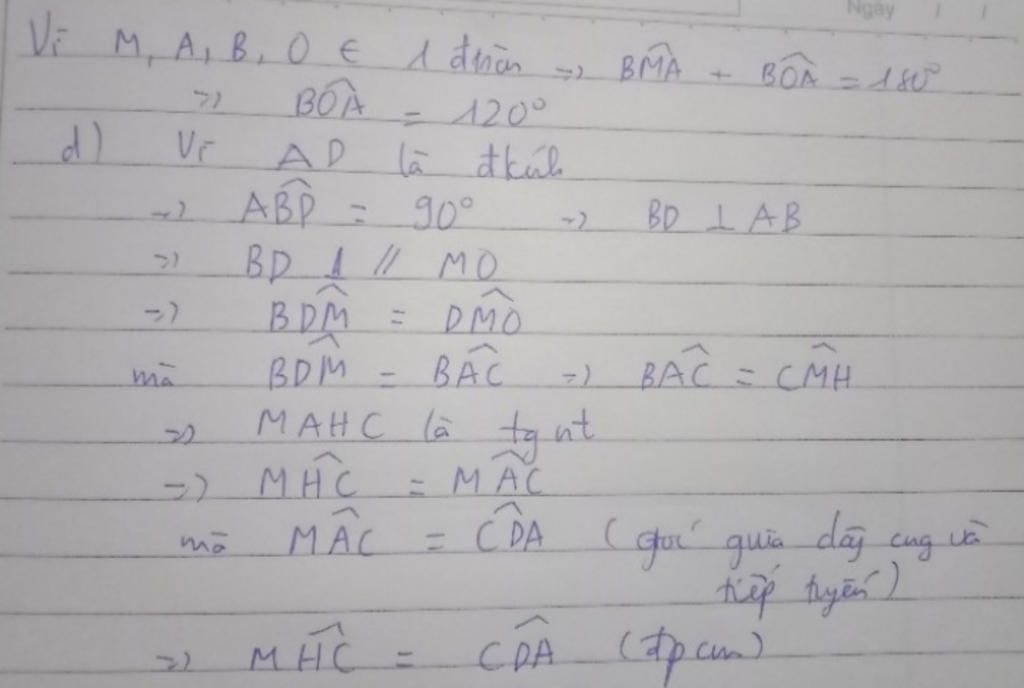 Ngày / /
Vì M, A, B, O ∈ 1 đtròn => BM̂A + BÔA = 180°
=> BÔA = 120°
d) Vì AD là đkính
=> AB̂D = 90° => BD ⊥ AB
=> BD // MO
=> BDM̂ = DM̂O
mà BDM̂ = BÂC => BÂC = CM̂H
=> MAHC là tg nt
=> MĤC = MÂC
mà MÂC = CD̂A (góc giữa dây cung và
tiếp tuyến)
=> MĤC = CD̂A (đpcm)